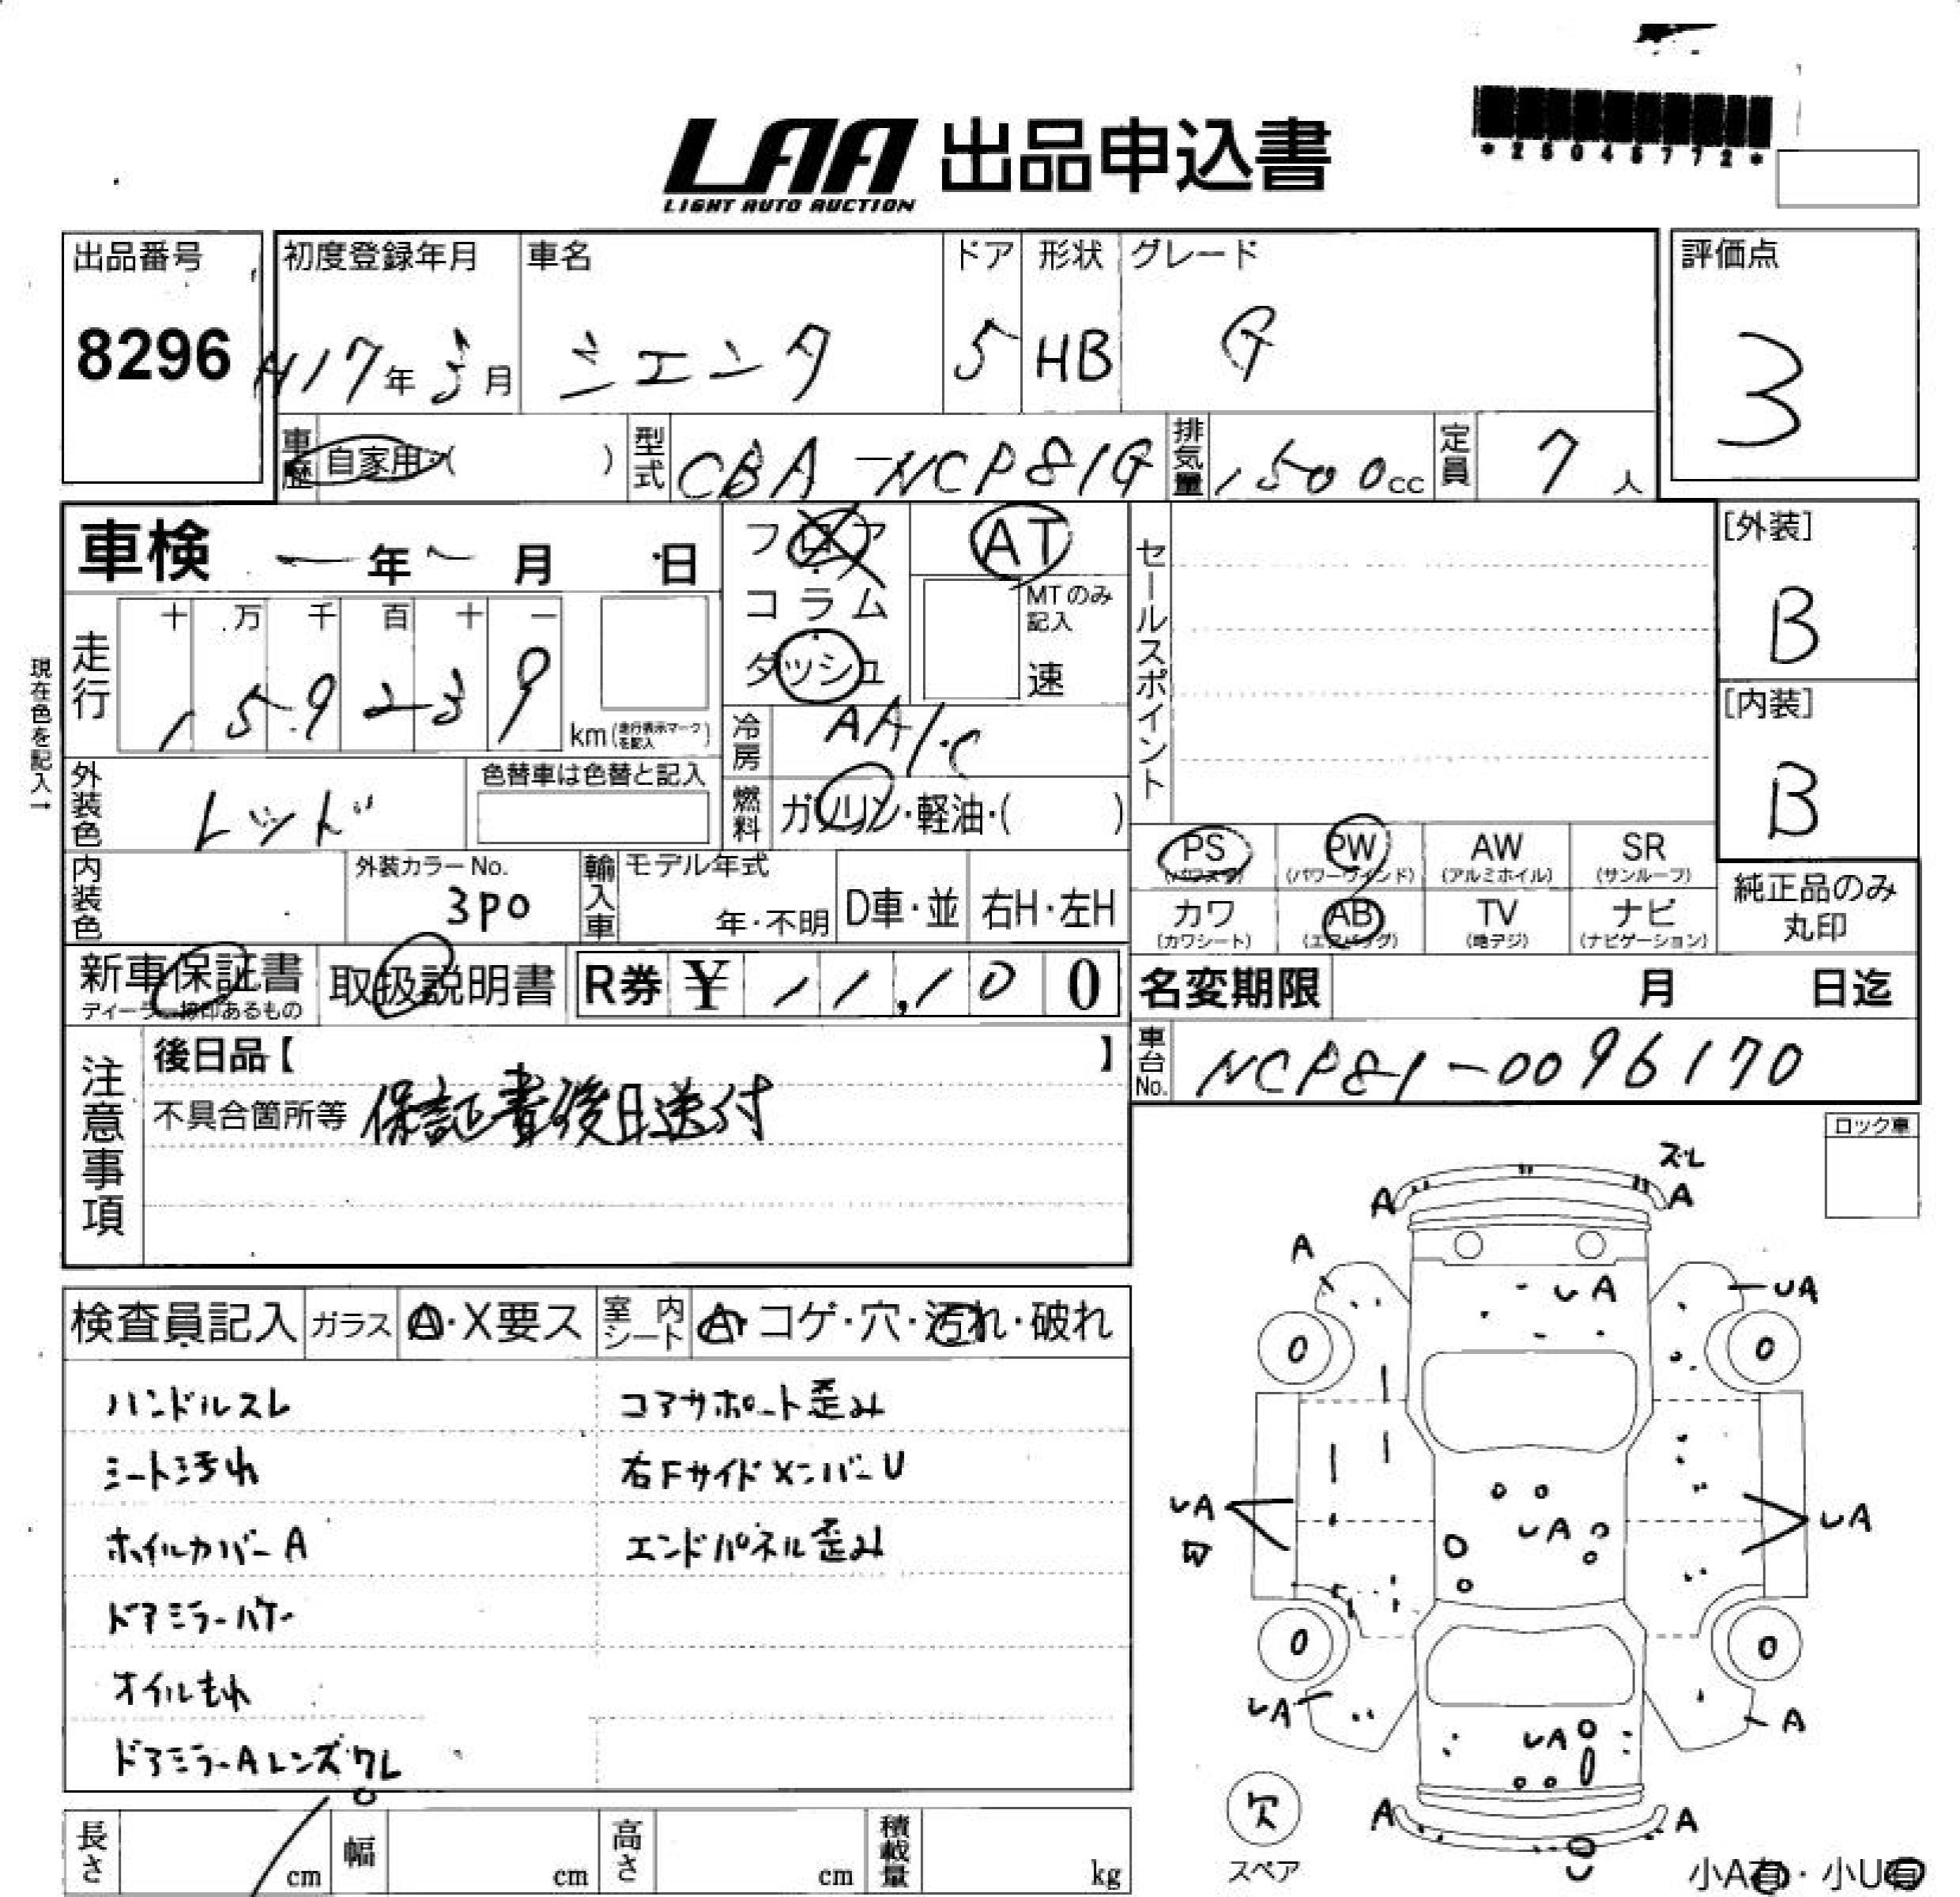 LAA 出品申込書
LIGHT AUTO AUCTION
*25045772*
出品番号
8296
初度登録年月
H17年3月
車名
シエンタ
ドア
5
形状
HB
グレード
G
評価点
3
車歴 自家用・( )
型式 CBA-NCP81G
排気量 1500cc
定員 7人
車検 ー年 ー月 日
フロア
コラム
ダッシュ
AT
MTのみ記入
速
セールスポイント
[外装]
B
[内装]
B
現在色を記入→
走行
十 万 千 百 十 一
1 5 9 2 3 9
km (走行表示マークを記入)
冷房 AA/C
外装色 レッド
色替車は色替と記入
燃料 ガソリン・軽油・( )
PS (パワステ)
PW (パワーウインド)
AW (アルミホイル)
SR (サンルーフ)
カワ (カワシート)
AB (エアバッグ)
TV (地デジ)
ナビ (ナビゲーション)
純正品のみ
丸印
内装色
外装カラーNo.
3P0
輸入車 モデル年式
年・不明
D車・並
右H・左H
新車保証書
ディーラー捺印あるもの
取扱説明書
R券 ¥ 11,100
名変期限 月 日迄
注意事項
後日品【 】
不具合箇所等 保証書後日送付
車台No. NCP81-0096170
ロック車
検査員記入
ガラス A・X要ス
室内シート A・コゲ・穴・汚れ・破れ
ハンドルスレ
シート汚れ
ホイルカバーA
ドアミラーハゲ
オイルもれ
ドアミラーAレンズワレ
コアサポート歪み
右FサイドメンバーU
エンドパネル歪み
ズレ
A
A
A
UA
UA
0
0
UA
UA
UA
0
0
UA
A
UA
A
A
欠
スペア
小A有・小U有
長さ cm
幅 cm
高さ cm
積載量 kg